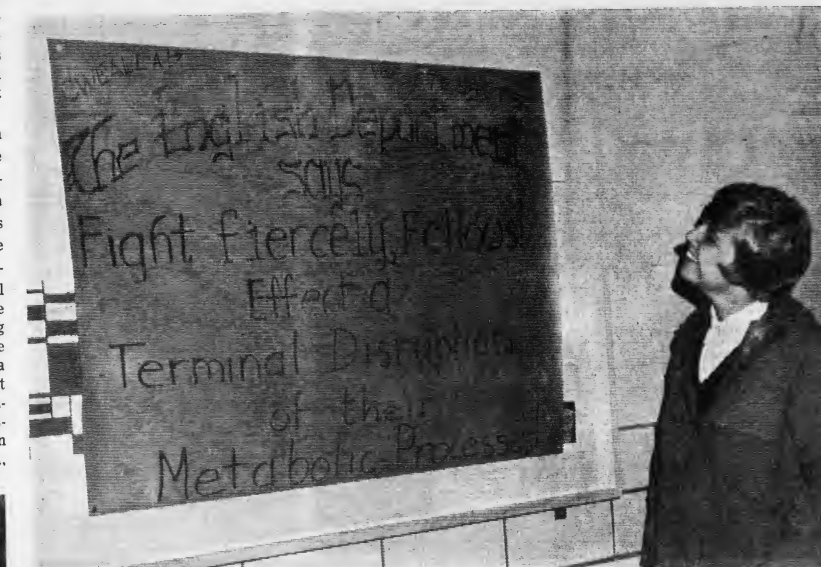 The English Department
says
Fight fiercely, Fellows
Effect a
Terminal Disruption
of their
Metabolic Processes